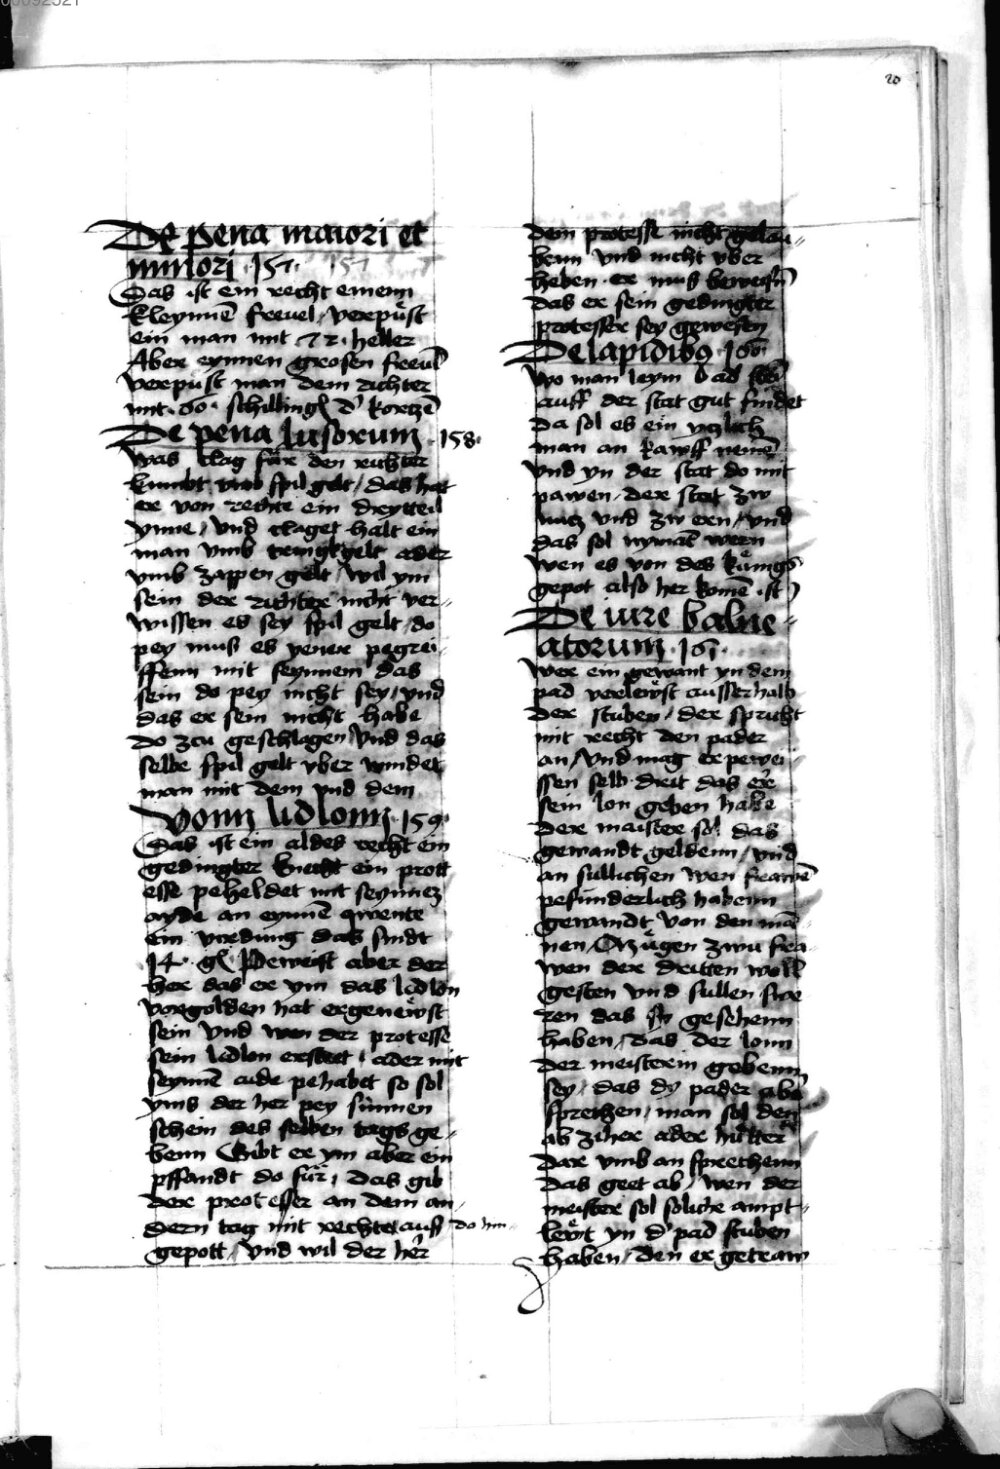 20
De pena maiori et
minori · 157 · 157
Das ist ein recht einem
kleynne͂ frevel / verepüst
ein man mit 72 · heller
Aber eynnen grosen freuel
verepüst man dem richter
mit · 60 · schilling d' kortze͂
De pena lusorum · 158 ·
was clag für den richter
kumbt vmb spil gelt / das hat
er von rechte ein dreytteil
ynne / vnd claget halt ein
man vmb trinckgelt ader
vmb zappen gelt / wil ym
sein der richter nicht ver-
wissen es sey spil gelt / do
pey muß es yener pegrei-
ffenn mit seynnem das
sein do pey nicht sey / vnd
das er sein nicht habe
do zcu geschlagen / vnd das
selbe spil gelt vber windet
man mit dem vnd dem
Vonn lidlonn · 159 ·
Das ist ein aldes recht ein
gedingter knecht ein prott
esse peheldet mit seynnez
ayde an eynne͂ qwente
ein virdung das sindt
14 · gl Peweist aber der
her das er ym das lidlon
vorgolden hat er geneüst
sein vnd wen der protesse
sein lidlon ersteet / ader mit
seynne͂ aide pehabet so sol
yms der her pey sünnen
schein des selben tags ge-
benn Gibt er ym aber ein
pffandt do für / das gib
der protesser an dem an-
dern tag mit rechte auff do hin
gepott / vnd wil der he͂r
dem protesse nicht gelau-
benn vnd nicht vber
heben · er mus beweisn͂
das er sein gedingter
protesser sey gewesen
De lapidibus · 160
wo man leym
auff der stat gut findet
da sol es ein yczlich
man an kawff neme͂
vnd yn der stat do mit
pawen / der stat zw
nucz vnd zw eren / vnd
das sol nymat wern
wen es von des künigs
gepot also her kome͂ ist
De iure balne-
atorum · 161 ·
wer ein gewant yn dem
pad verlewst ausserhalb
der stuben / der spricht
mit recht den pader
an / vnd mag er pewei-
ssen selb dritt das er
sein lon geben habe
der maister sol das
gewandt geldenn / vnd
an sullichen wen frawe͂
pesunderlich habenn
gewandt von den ma͂-
nen / Orzügen zwu fra-
wen der dritten woll
gesten vnd sullen swe-
ren das sy gesehenn
haben / das der lonn
der meisterin gebenn
sey / das dy pader abe͂
sprechen / man sol den
ab ziher ader hütter
dar vmb an sprechenn
das geet ab / wen der
meister sol soliche ampt-
lewt yn d' pad stuben
haben / den er getraw